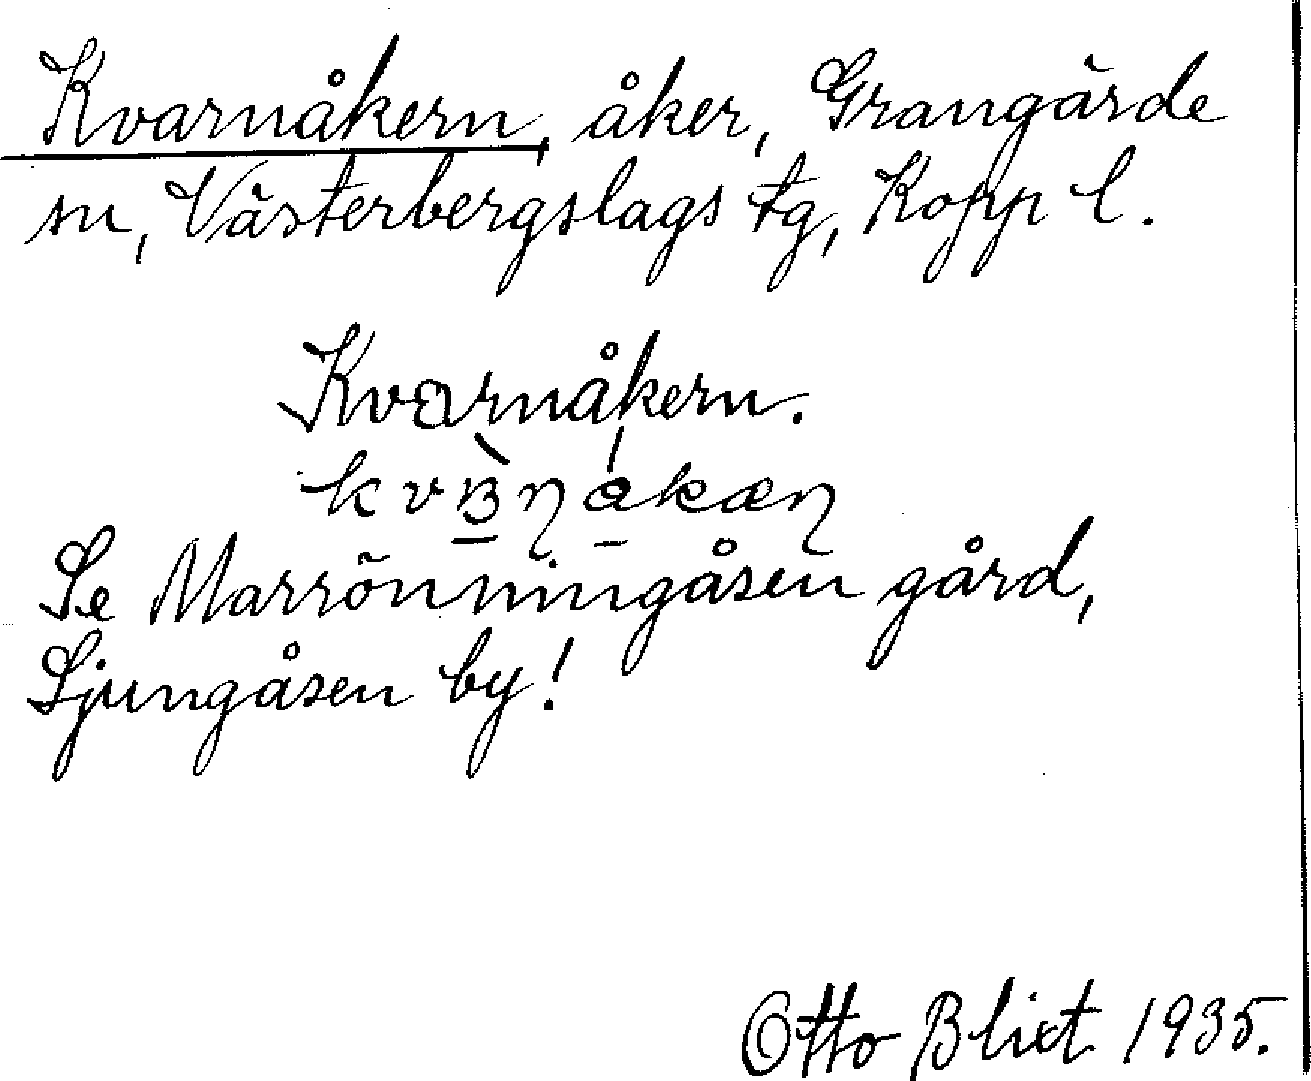 Kvarnåkern, åker, Grangärde
sn, Västerbergslags tg, Kopp l.
Kvarnåkern.
Se Marrönningåsen gård,
Ljungåsen by!
Otto Blixt 1935.